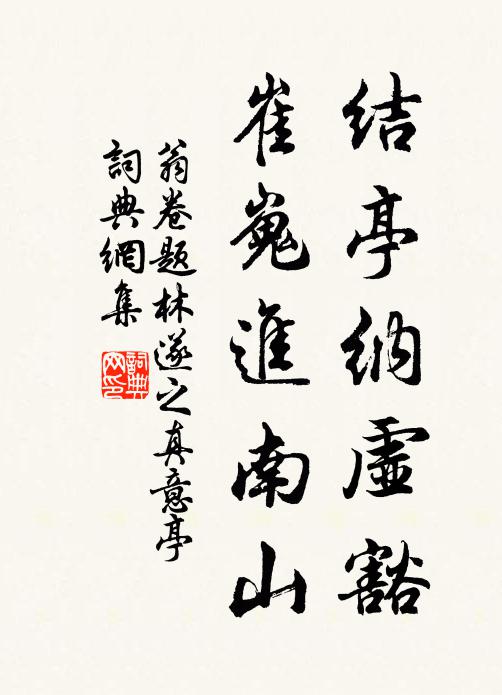 结亭纳虚豁
崔嵬進南山
翁卷题林遂之真意亭
詞典網集
詞典网印